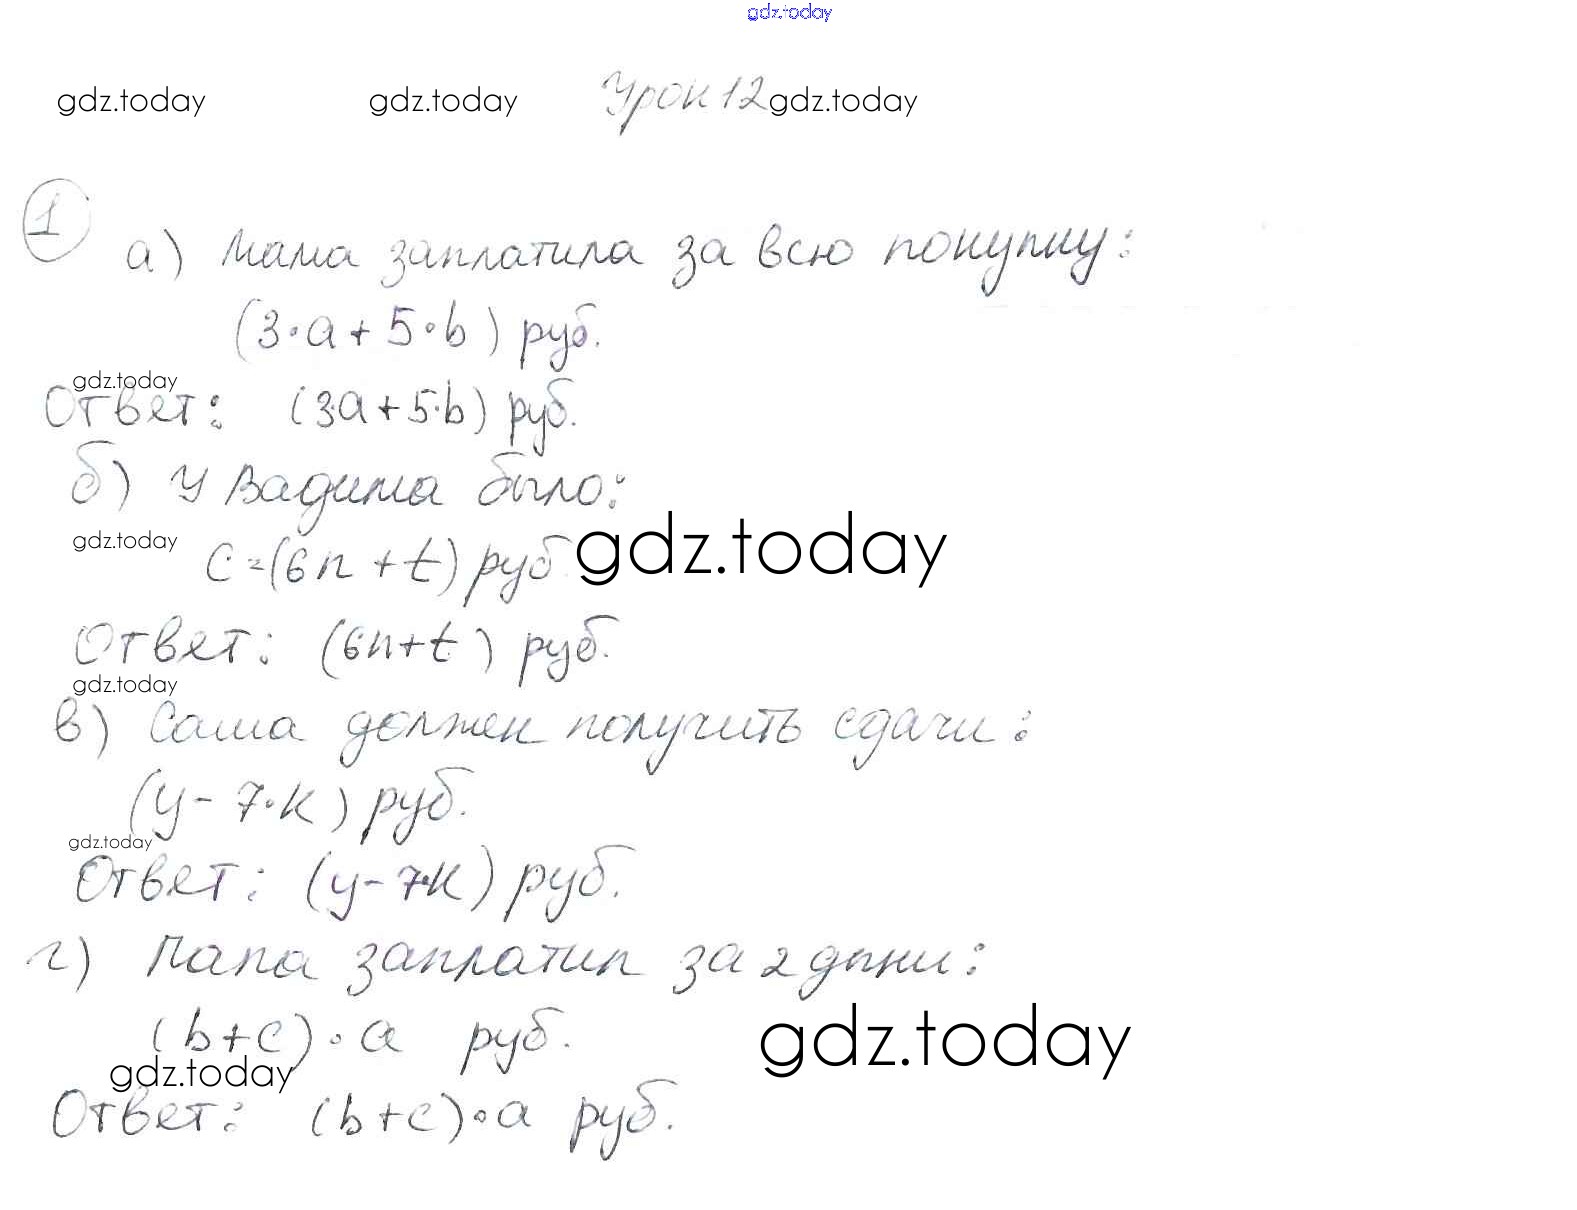 gdz.today
gdz.today gdz.today Урок 12 gdz.today
1
а) Мама заплатила за всю покупку:
(3·a+5·b) руб.
gdz.today
Ответ: (3·a+5·b) руб.
б) У Вадима было:
gdz.today
c=(6n+t) руб. gdz.today
Ответ: (6n+t) руб.
gdz.today
в) Саша должен получить сдачи:
(y-7·k) руб.
gdz.today
Ответ: (y-7·k) руб.
г) Папа заплатил за 2 дыни:
(b+c)·a руб. gdz.today
gdz.today
Ответ: (b+c)·a руб.